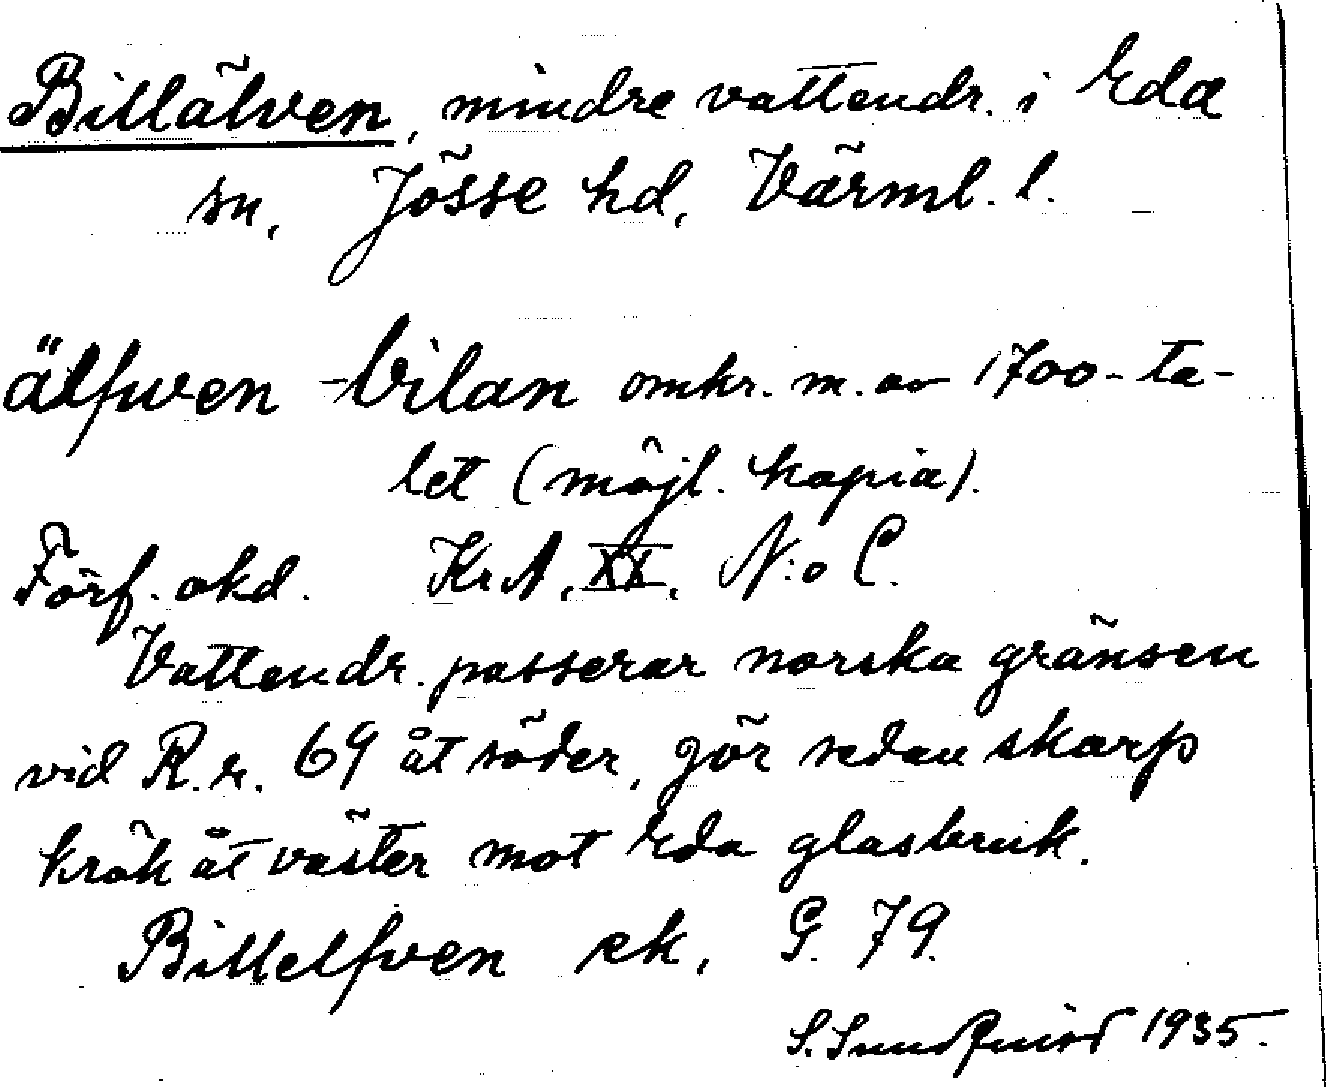 Billälven, mindre vattendr. i Eda
sn, Jösse hd, Värml. l.
älfwen bilan omkr. m. av 1700-ta-
let (möjl. kopia).
Förf. okd. KrA, XX, N:o C.
Vattendr. passerar norska gränsen
vid R.r. 69 åt söder, gör sedan skarp
krök åt väster mot Eda glasbruk.
Billelfven ek, G. 79.
S. Sundqvist 1935.